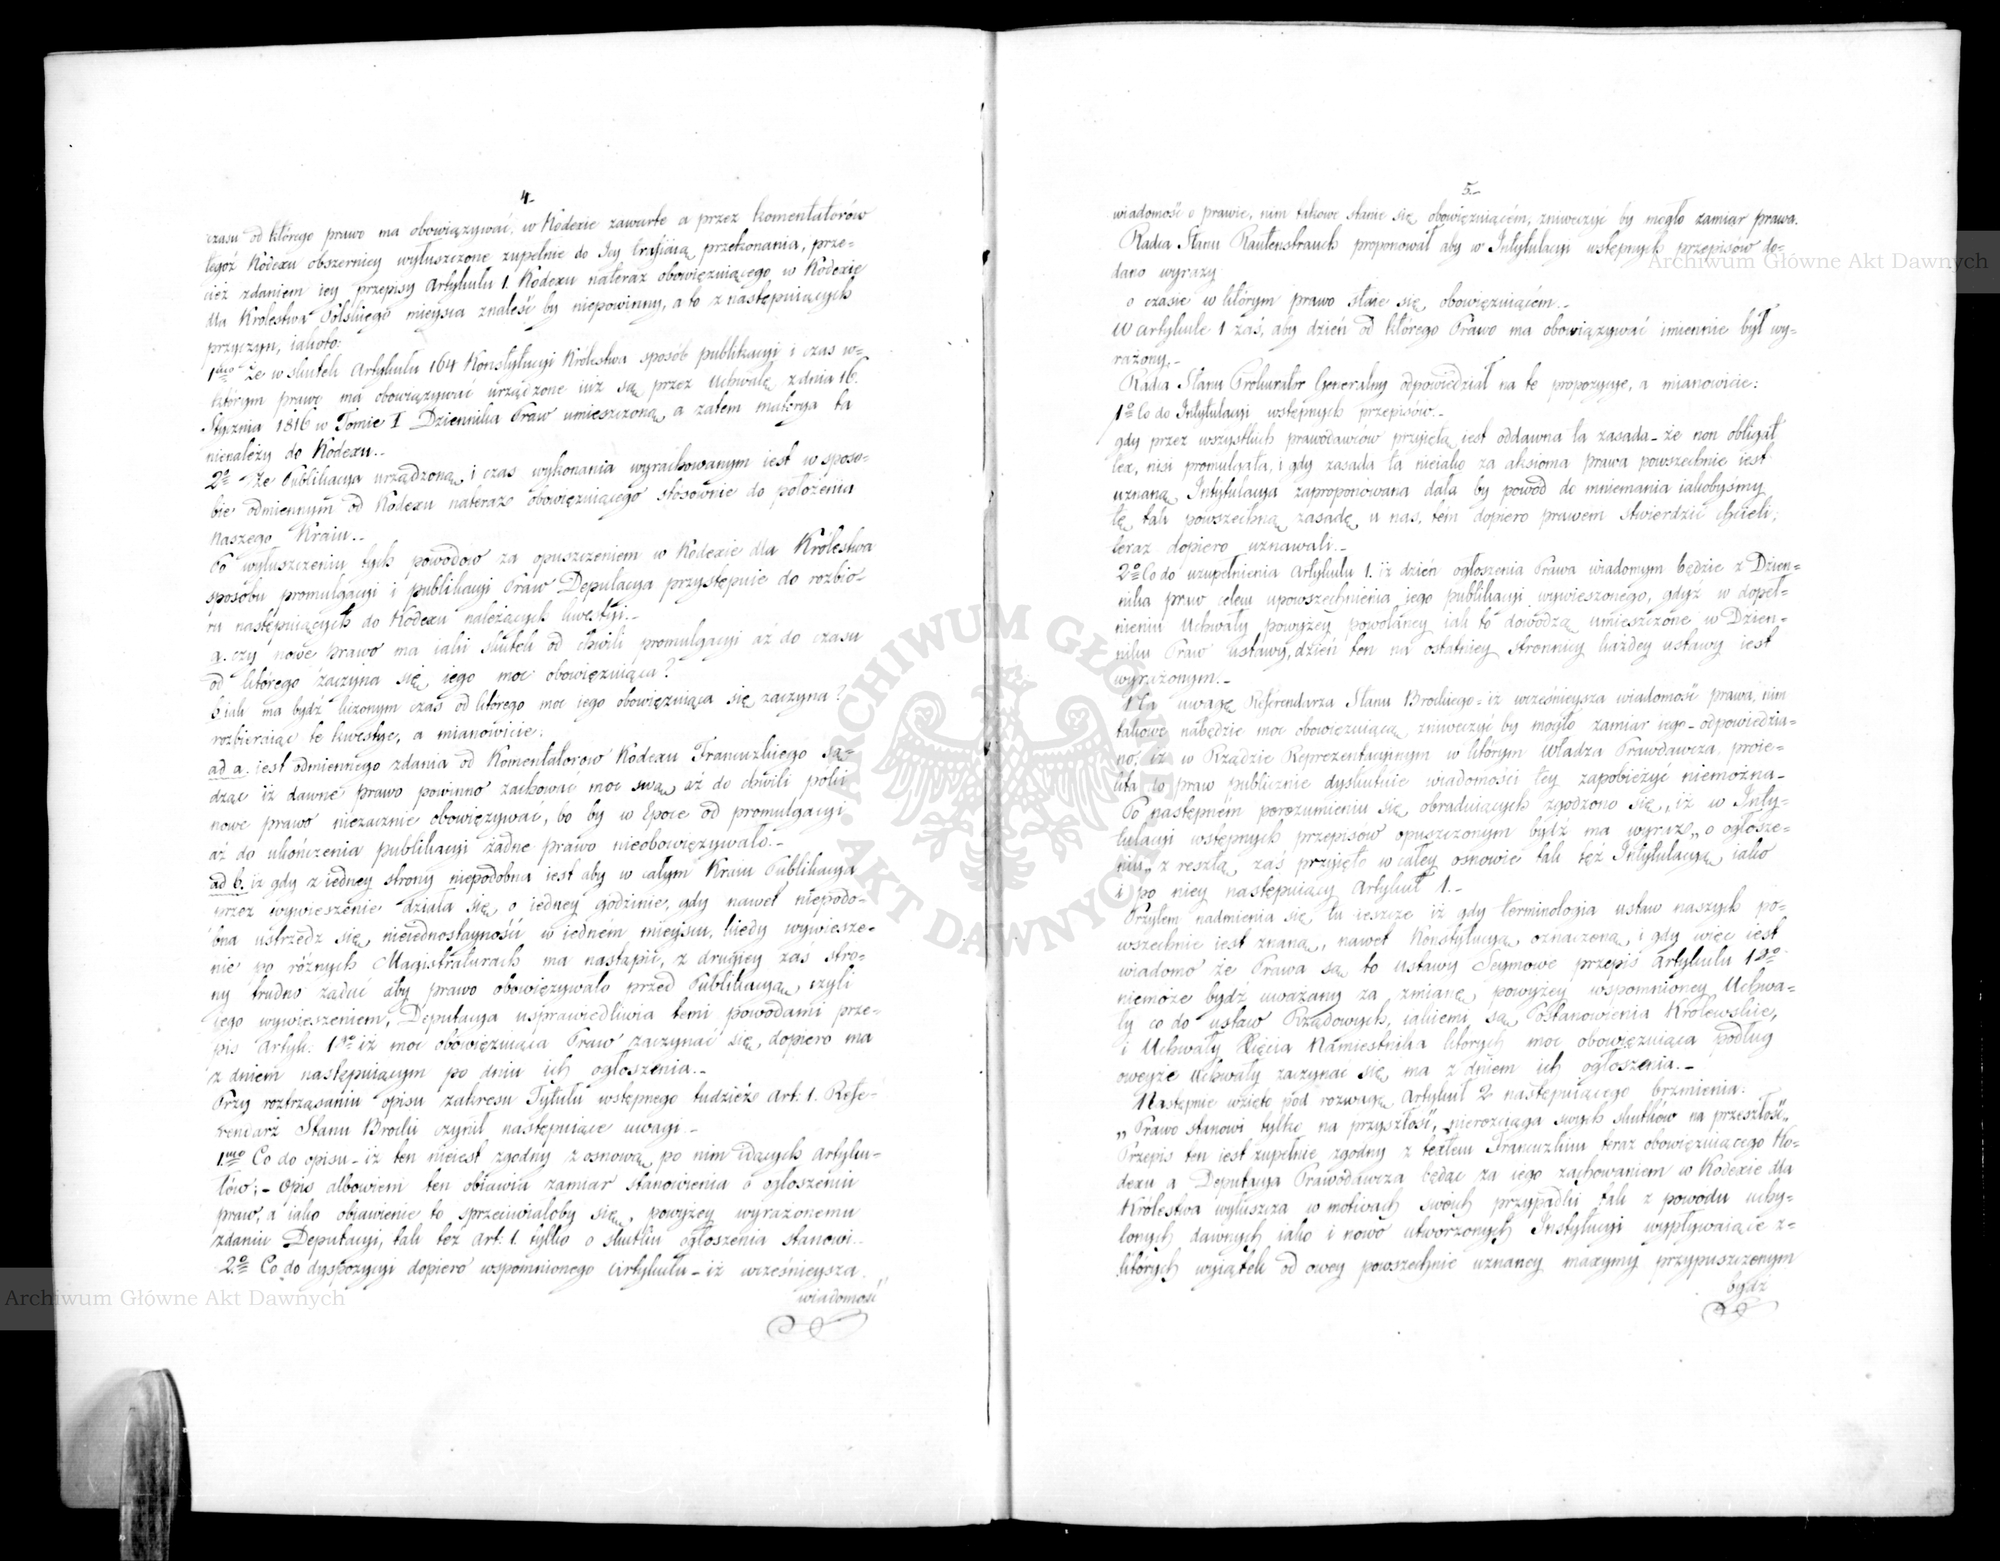 4.
czasu od którego prawo ma obowiązywać, w Kodexie zawarte a przez Komentatorów
tegóż Kodexu obszerniey wyłuszczone zupełnie do Jey trafiaią przekonania, prze-
cież zdaniem iey przepisy Artykułu 1. Kodexu nateraz obowięzuiącego w Kodexie
dla Królestwa Polskiego mieysca znaleść by niepowinny, a to z następuiących
przyczyn, iakoto:
1mo że w skutek Artykułu 164 Konstytucyi Królestwa sposób publikacyi i czas w-
którym prawo ma obowiązywać urządzone iuż są przez Uchwałę z dnia 16.
Stycznia 1816 w Tomie I Dziennika Praw umieszczoną, a zatem materya ta
nienależy do Kodexu.-
2o że Publikacya urządzoną, i czas wykonania wyrachowanym iest w sposo-
bie odmiennym od Kodexu nateraz obowięzuiącego stosownie do położenia
naszego Kraiu.-
Po wyłuszczeniu tych powodów za opuszczeniem w Kodexie dla Królestwa
sposobu promulgacyi i publikacyi Praw Deputacya przystępuie do rozbio-
ru następuiących do Kodexu należących kwestyi.-
a. czy nowe prawo ma iaki skutek od chwili promulgacyi aż do czasu
od którego zaczyna się iego moc obowięzuiąca?
b. iak ma bydź liczonym czas od którego moc iego obowięzuiąca się zaczyna?
rozbieraiąc te kwestye, a mianowicie:
ad a. iest odmiennego zdania od Komentatorów Kodexu Francuzkiego są-
dząc iż dawne prawo powinno zachować moc swą aż do chwili póki
nowe prawo niezacznie obowięzywać, bo by w Epoce od promulgacyi
aż do ukończenia publikacyi żadne prawo nieobowięzywało.-
ad b. iż gdy z iedney strony niepodobna iest aby w całym Kraiu Publikacya
przez wywieszenie działa się o iedney godzinie, gdy nawet niepodo-
bna ustrzedz się nieiednostayności w iedném mieyscu, kiedy wywiesze-
nie po różnych Magistraturach ma nastąpić, z drugiey zaś stro-
ny trudno żądać aby prawo obowięzywało przed Publikacyą, czyli
iego wywieszeniem, Deputacya usprawiedliwia temi powodami prze-
pis Artyk: 1go iż moc obowięzuiąca Praw zaczynać się dopiero ma
z dniem następuiącym po dniu ich ogłoszenia.-
Przy roztrząsaniu opisu zakresu Tytułu wstępnego tudzież Art: 1. Refe-
rendarz Stanu Brocki czynił następuiące uwagi.-
1mo Co do opisu - iż ten nieiest zgodny z osnową po nim idących Artyku-
łów; - Opis albowiem ten obiawia zamiar stanowienia o ogłoszeniu
praw, a iako obiawienie to sprzeciwiałoby się, powyżey wyrażonemu
zdaniu Deputacyi, tak też Art: 1. tylko o skutku ogłoszenia stanowi.-
2o Co do dyspozycyi dopiero wspomnionego Artykułu - iż wcześnieysza
wiadomość
5.
wiadomość o prawie, nim takowe stanie się obowięzuiącém, zniweczyć by mogło zamiar prawa.
Radca Stanu Rautenstrauch proponował aby w Intytulacyi wstępnych przepisów do-
dano wyrazy
o czasie w którym prawo staie się obowięzuiącém.-
W Artykule 1 zaś, aby dzień od którego Prawo ma obowiązywać imiennie był wy-
rażony.-
Radca Stanu Prokurator Generalny odpowiedział na te propozycye, a mianowicie:
1o Co do Intytulacyi wstępnych przepisów.-
gdy przez wszystkich prawodawców przyiętą iest oddawna ta zasada - że non obligat
lex, nisi promulgata, i gdy zasada ta nieiako za aksioma prawa powszechnie iest
uznaną, Intytulacya zaproponowana dała by powód do mniemania iakobyśmy
tę tak powszechną zasadę, u nas, tém dopiero prawem stwierdzić chcieli,
teraz dopiero uznawali.-
2o Co do uzupełnienia Artykułu 1. iż dzień ogłoszenia Prawa wiadomym będzie z Dzien-
nika praw celem upowszechnienia iego publikacyi wywieszonego, gdyż w dopeł-
nieniu Uchwały powyżey powołaney iak to dowodzą umieszczone w Dzien-
niku Praw Ustawy, dzień ten na ostatniey stronnicy każdey ustawy iest
wyrażonym.-
Na uwagę Referendarza Stanu Brockiego - iż wcześnieysza wiadomość prawa, nim
takowe nabędzie moc obowięzuiącą zniweczyć by mogło zamiar iego - odpowiedzia-
no, iż w Rządzie Reprezentacyinym w którym Władza Prawodawcza, proie-
kta do praw publicznie dyskutuie wiadomości tey zapobieżyć niemożna.-
Po następném porozumieniu się obraduiących zgodzono się, iż w Inty-
tulacyi wstępnych przepisów opuszczonym bydź ma wyraz „o ogłosze-
niu„ z resztą zaś przyięto w całey osnowie tak też Intytulacyą iako
i po niey następuiący Artykuł 1.-
Przytem nadmienia się tu ieszcze iż gdy terminologia ustaw naszych po-
wszechnie iest znaną, nawet Konstytucyą oznaczoną, i gdy więc iest
wiadomo że Prawa są to ustawy Seymowe przepis Artykułu 1go
niemoże bydź uważany za zmianę powyżey wspomnioney Uchwa-
ły co do ustaw Rządowych, iakiemi są Postanowienia Królewskie,
i Uchwały Xięcia Namiestnika których moc obowięzuiąca podług
oweyże Uchwały zaczynać się ma z dniem ich ogłoszenia.-
Następnie wzięto pod rozwagę Artykuł 2 następuiącego brzmienia.
„Prawo stanowi tylko na przyszłość, nierozciąga swych skutków na przeszłość„
Przepis ten iest zupełnie zgodny z textem Francuzkim teraz obowięzuiącego Ko-
dexu a Deputacya Prawodawcza będąc za iego zachowaniem w Kodexie dla
Królestwa wyłuszcza w motivach swoich przypadki tak z powodu uchy-
lonych dawnych iako i nowo utworzonych Instytucyi wypływaiące z-
których wyiątek od owey powszechnie uznaney maxymy przypuszczonym
bydź
Archiwum Główne Akt Dawnych
Archiwum Główne Akt Dawnych
ARCHIWUM GŁÓWNE AKT DAWNYCH